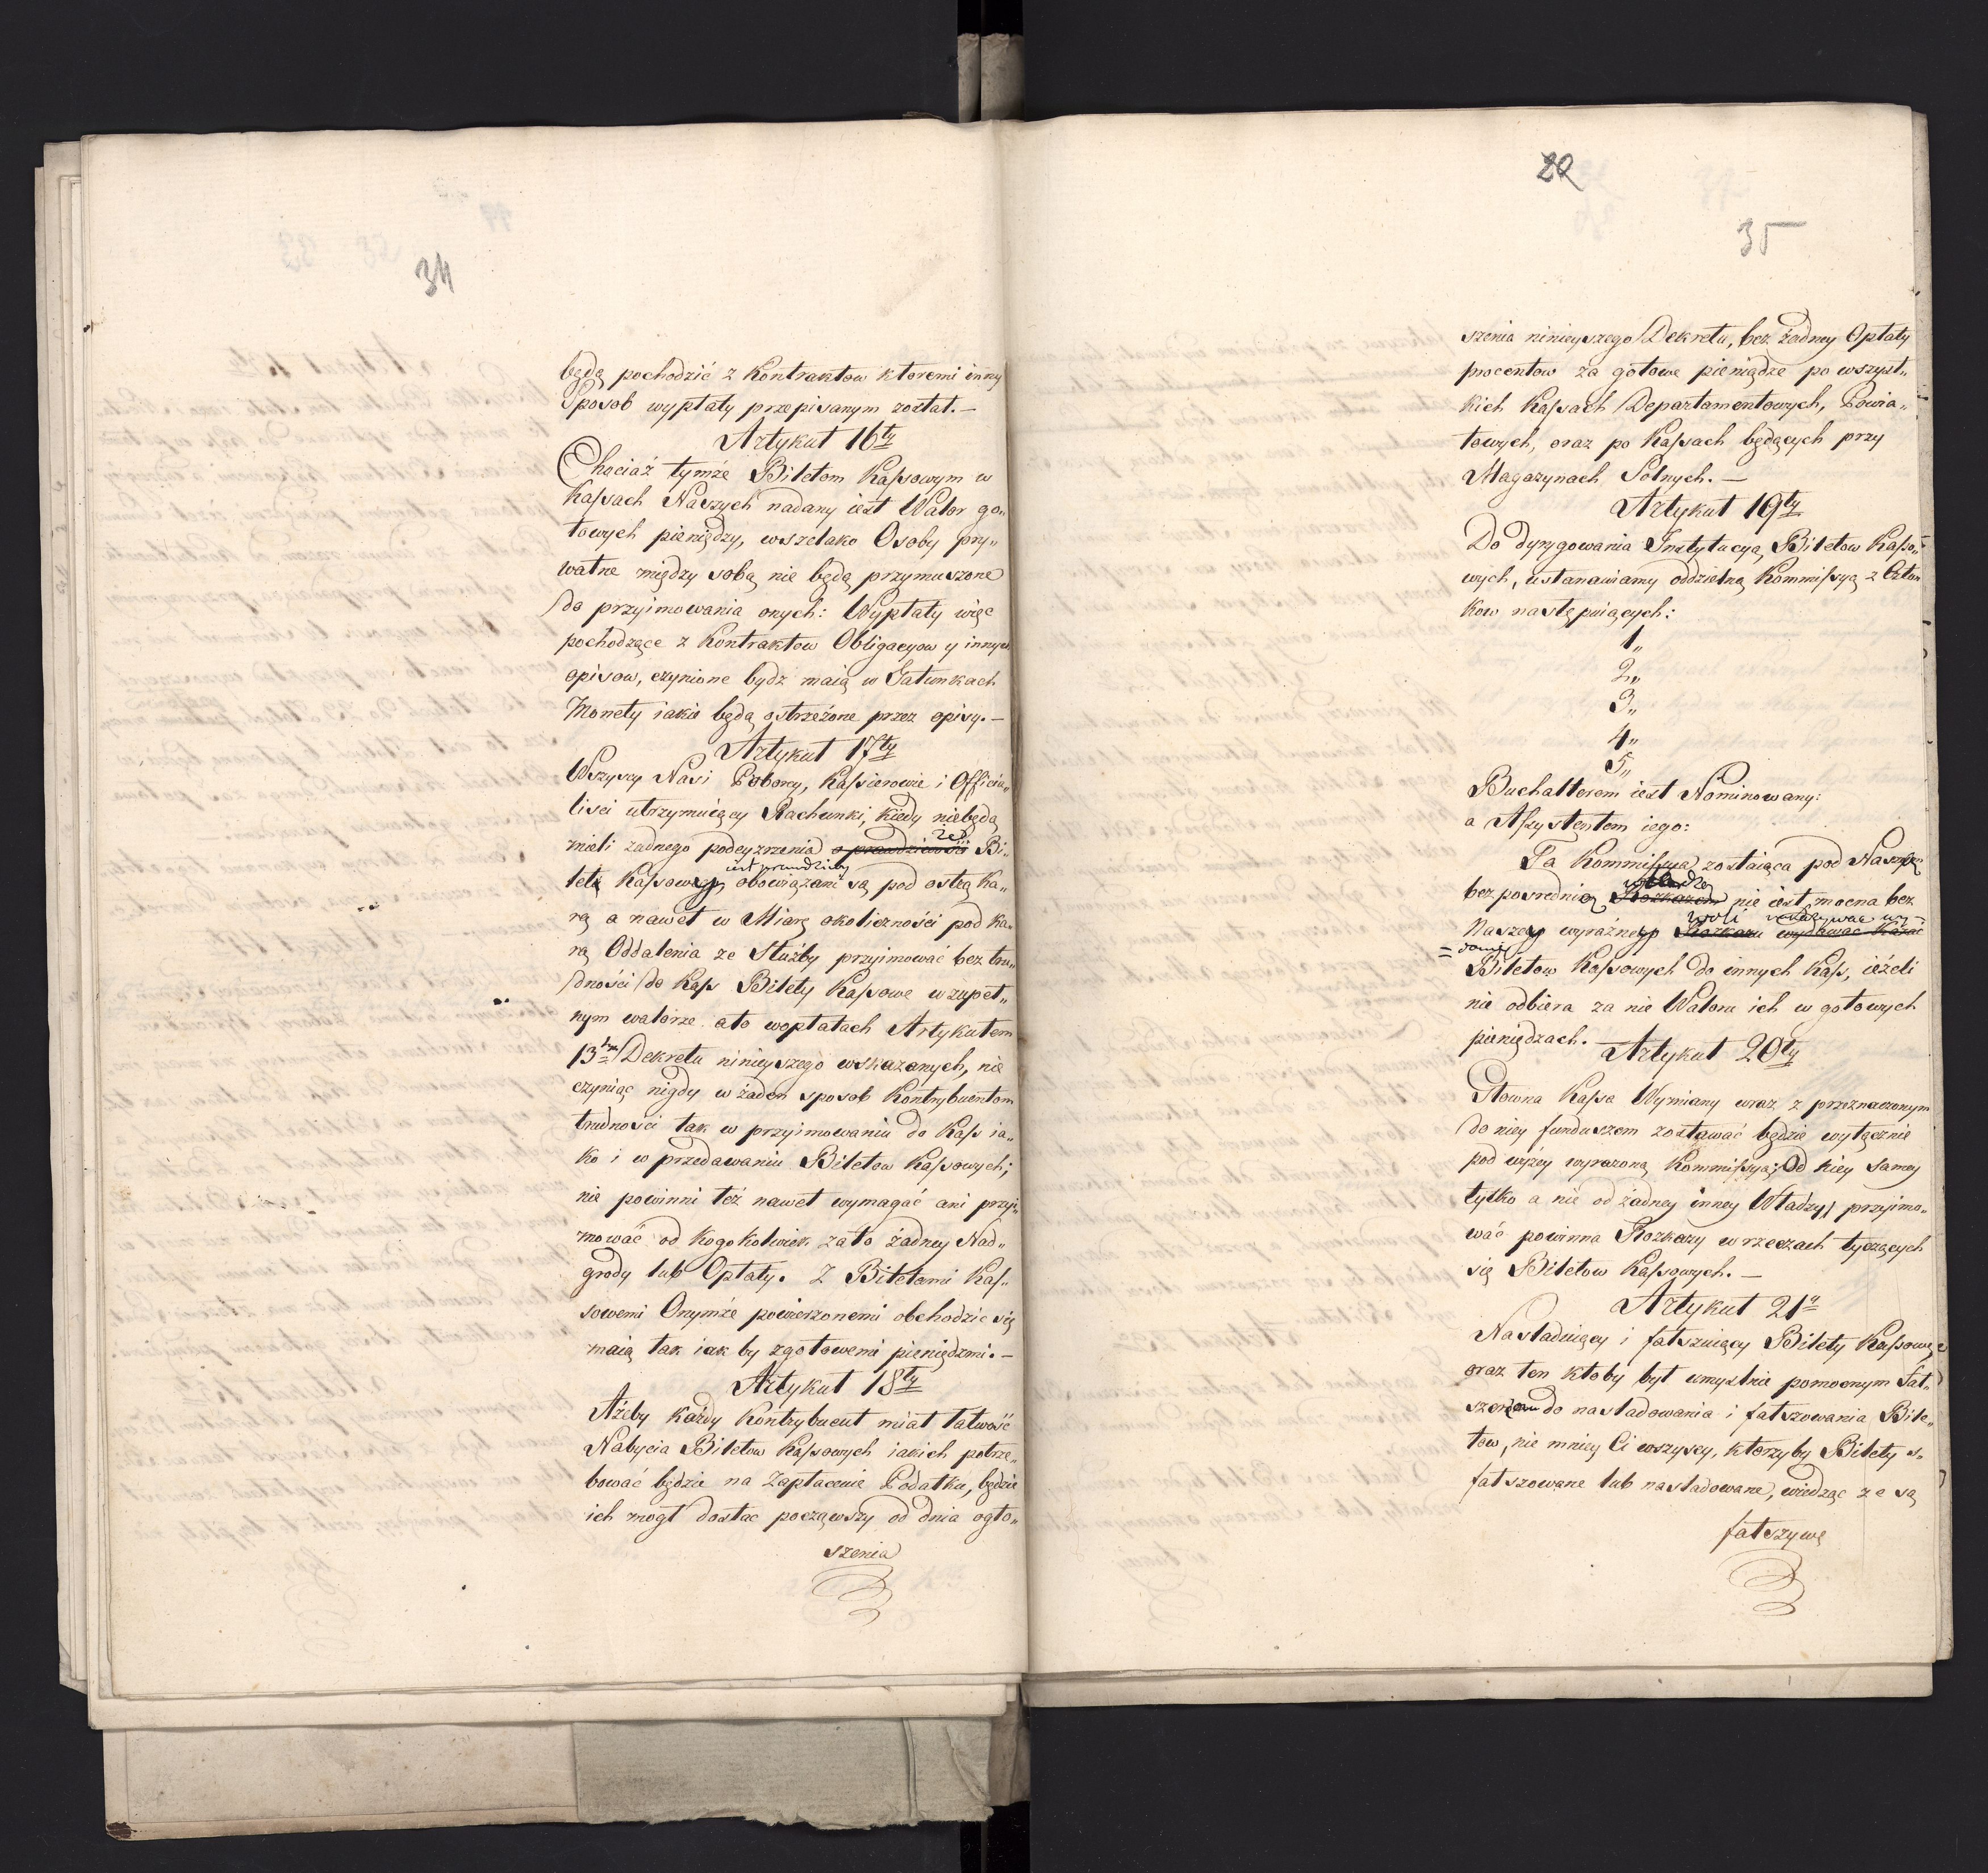 34
będą pochodzić z Kontraktow ktoremi inny
Sposob wypłaty przepisanym został. –
Artykuł 16ty
Chociaż tymże Biletom Kassowym w
Kassach Naszych nadany iest Walor go„
towych pieniędzy, wszelako Osoby pry„
watne między sobą nie będą przymuszone
do przyimowania onych: Wypłaty więc
pochodzące z Kontraktow Obligacyow y innych
opisow, czynione bydz maią w Gatunkach
Monety iakie będą ostrzeżone przez opisy. –
Artykuł 17ty
Wszyscy Nasi Poborcy, Kassierowie i Officia„
lisci utrzymuiący Rachunki, kiedy niebędą
mieli żadnego podeyzrzenia o prawdziwości że Bi„
let Kassowy iest prawdziwy obowiązani są pod ostrą ka„
rą a nawet w Miarę okoliczności pod ka„
rą Oddalenia ze Służby przyimować bez tru„
dności do Kass Bilety Kassowe w zupeł„
nym walorze ato wopłatach Artykułem
13ty Dekretu ninieyszego wskazanych, nie
czyniąc nigdy w żaden sposob Kontrybuentom
trudności tak w przyimowaniu do Kass ia„
ko i w przedawaniu Biletow Kassowych;
nie powinni też nawet wymagać ani przyi„
mować od kogokolwiek zato żadney Nad„
grody lub Opłaty. Z Biletami Kas„
sowemi Onymże powierzonemi obchodzić się
maią tak iak by zgotowemi pieniędzmi. –
Artykuł 18ty
Ażeby każdy Kontrybuent miał łatwość
Nabycia Biletow Kassowych iakich potrze„
bować będzie na Zapłacenie Podatku, będzie
ich mogł dostać począwszy od dnia ogło„
szenia
20
35
szenia ninieyszego Dekretu, bez żadney Opłaty
procentow za gotowe pieniądze po wszyst„
kich Kassach Departamentowych, Powia„
towych, oraz po Kassach będących przy
Magazynach Solnych. –
Artykuł 19ty
Do dyrygowania Instytucyą Biletow Kasso„
wych, ustanawiamy oddzielną Kommissyą z Człon
kow następuiących:
1„
2„
3„
4„
5„
Buchalterem iest Nominowany:
a Assystentem iego:
Ta Kommissya zostaiąca pod Naszą
bezposrednią Rozkazem władzą nie iest mocna bez
Naszey wyraźney Rozkazu woli wydawać
Biletow Kassowych do innych Kass, ieżeli
nie odbiera za nie Waloru ich w gotowych
pieniędzach.
Artykuł 20ty
Głowna Kassa Wymiany wraz z przeznaczonym
do niey funduszem zostawać będzie wyłącznie
pod wyżey wyrazoną Kommissyą; Od niey samey
tylko a nie od żadney inney Władzy, przyimo„
wać powinna Rozkazy w rzeczach tyczących
się Biletow Kassowych. –
Artykuł 21o
Nasladuiący i fałszuiący Bilety Kassowe,
oraz ten ktoby był umyslnie pomocnym Fał„
do nasladowania i fałszowania Bile„
tow, nie mniey Ci wszyscy, ktorzyby Bilety s„
fałszowane lub nasladowane, wiedząc że są
fałszywe